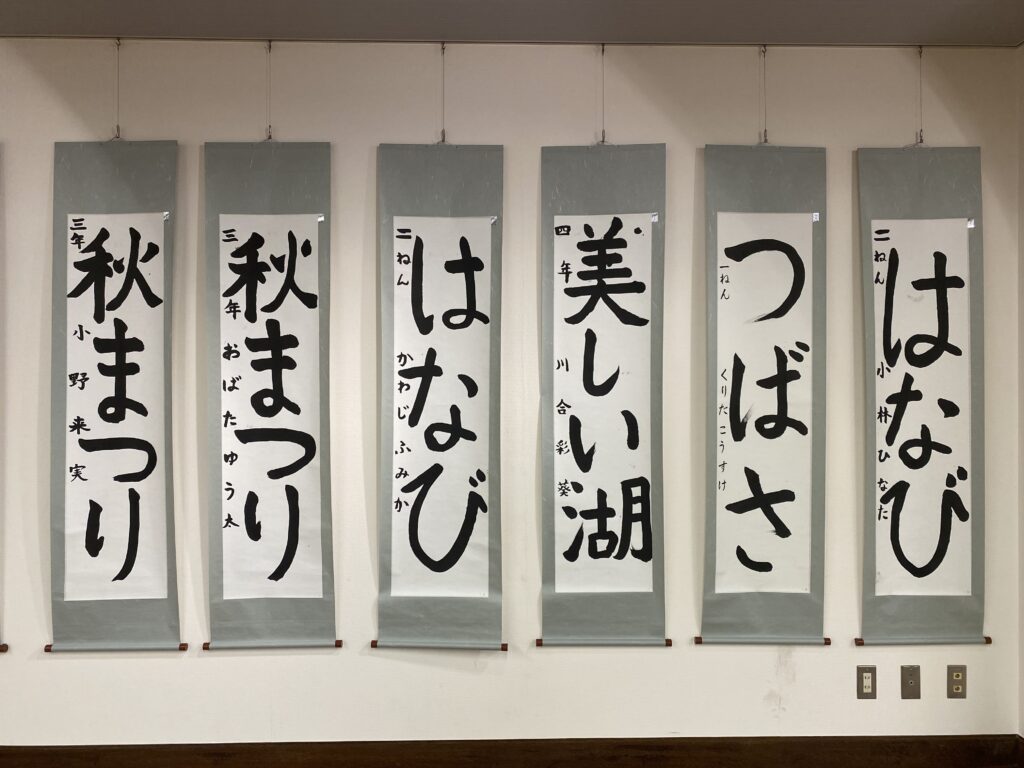 はなび
二ねん 小林ひなた
つばさ
一ねん くりたこうすけ
美しい湖
四年 川合彩葵
はなび
二ねん かわじふみか
秋まつり
三年 おばたゆう太
秋まつり
三年 小野来実